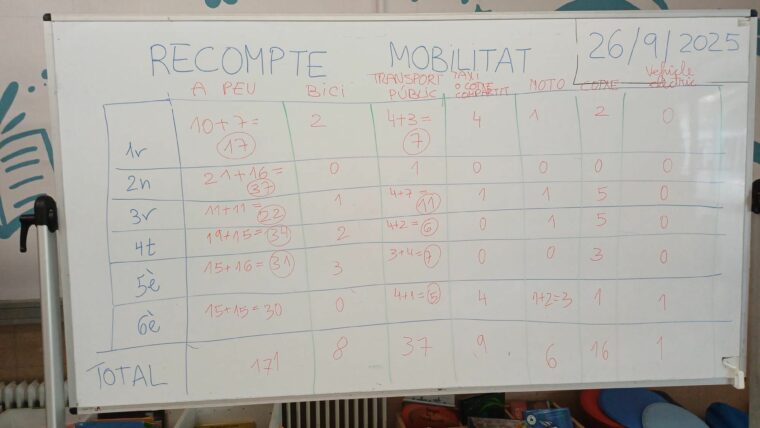 RECOMPTE MOBILITAT 26/9/2025
A PEU BICI TRANSPORT PÚBLIC TAXI O COTXE COMPARTIT MOTO COTXE vehicle elèctric
1r 10+7= 17 2 4+3= 7 4 1 2 0
2n 21+16= 37 0 1 0 0 0 0
3r 11+11= 22 1 4+7= 11 1 1 5 0
4t 19+15= 34 2 4+2= 6 0 1 5 0
5è 15+16= 31 3 3+4= 7 0 0 3 0
6è 15+15= 30 0 4+1= 5 4 1+2=3 1 1
TOTAL 171 8 37 9 6 16 1